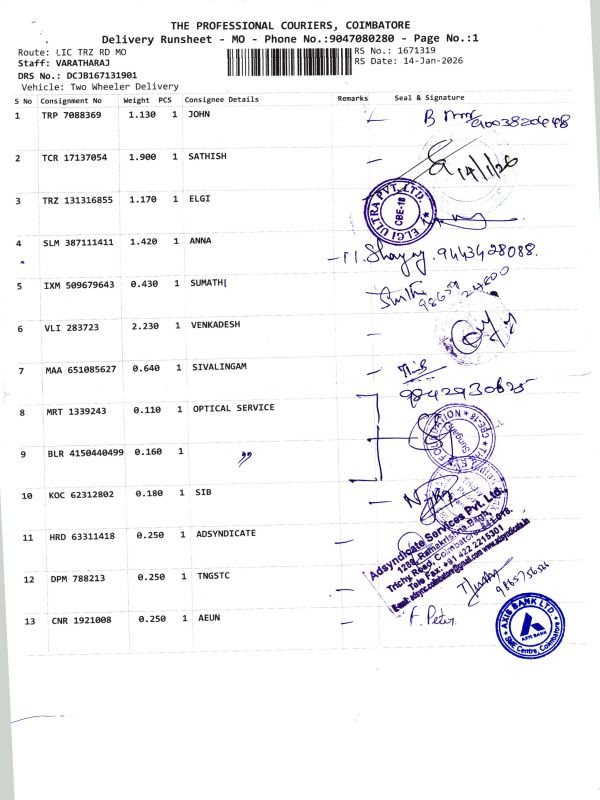 THE PROFESSIONAL COURIERS, COIMBATORE
Delivery Runsheet - MO - Phone No.:9047080280 - Page No.:1
Route: LIC TRZ RD MO
RS No.: 1671319
Staff: VARATHARAJ
RS Date: 14-Jan-2026
DRS No.: DCJB167131901
Vehicle: Two Wheeler Delivery
S No Consignment No Weight PCS Consignee Details Remarks Seal & Signature
1 TRP 7088369 1.130 1 JOHN
9003820448
2 TCR 17137054 1.900 1 SATHISH
14/1/26
3 TRZ 131316855 1.170 1 ELGI
ELGI ULTRA PVT. LTD. CBE-18
4 SLM 387111411 1.420 1 ANNA
9443428088.
5 IXM 509679643 0.430 1 SUMATHI
6 VLI 283723 2.230 1 VENKADESH
7 MAA 651085627 0.640 1 SIVALINGAM
8 MRT 1339243 0.110 1 OPTICAL SERVICE
FOUNDATION CBE-18
9 BLR 4150440499 0.160 1 "
10 KOC 62312802 0.180 1 SIB
11 HRD 63311418 0.250 1 ADSYNDICATE
Adsyndicate Services Pvt. Ltd.,
Trichy Road, Coimbatore
Tele Fax: +91 422 2215301
12 DPM 788213 0.250 1 TNGSTC
13 CNR 1921008 0.250 1 AEUN
F. Peter
AXIS BANK LTD
AXIS BANK
SME Centre, Coimbatore